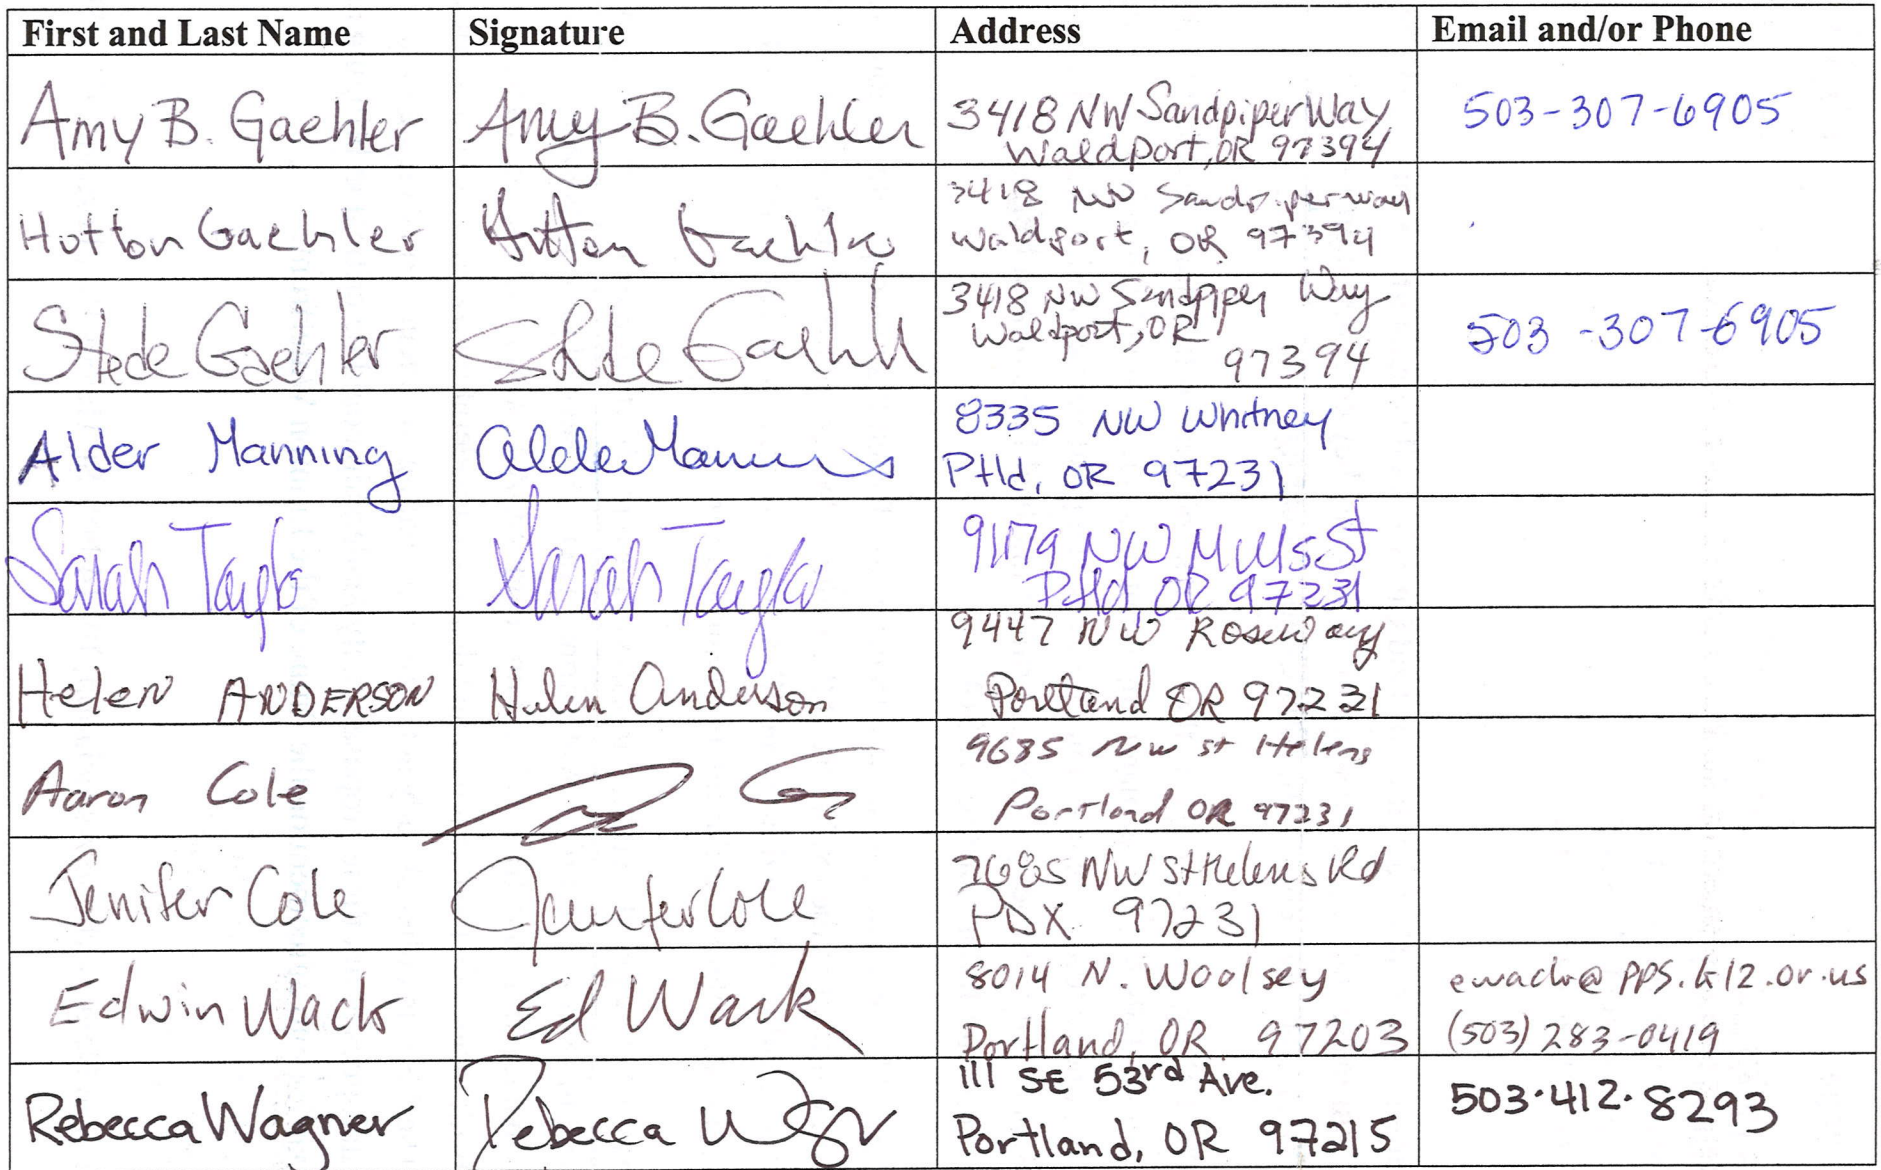 First and Last Name Signature Address Email and/or Phone
Amy B. Gaehler Amy B. Gaehler 3418 NW Sandpiper Way 503-307-6905
Waldport, OR 97394
Hutton Gaehler Hutton Gaehler 3418 NW Sandpiper way
Waldport, OR 97394
Stede Gaehler Stede Gaehler 3418 NW Sandpiper Way 503-307-6905
Waldport, OR
97394
Alder Manning Alder Manning 8335 NW Whitney
Ptld, OR 97231
Sarah Taylo Sarah Taylor NW Mills St
Ptld, OR 97231
Helen ANDERSON Helen Anderson 9447 NW Roseway
Portland OR 97231
Aaron Cole 9685 NW st Helens
Portland OR 97231
Jenifer Cole Jenifer Cole NW St Helens Rd
PDX 97231
Edwin Wack Ed Wack 8014 N. Woolsey ewack@pps.k12.or.us
Portland, OR 97203 (503) 283-0419
Rebecca Wagner Rebecca 111 SE 53rd Ave. 503.412.8293
Portland, OR 97215